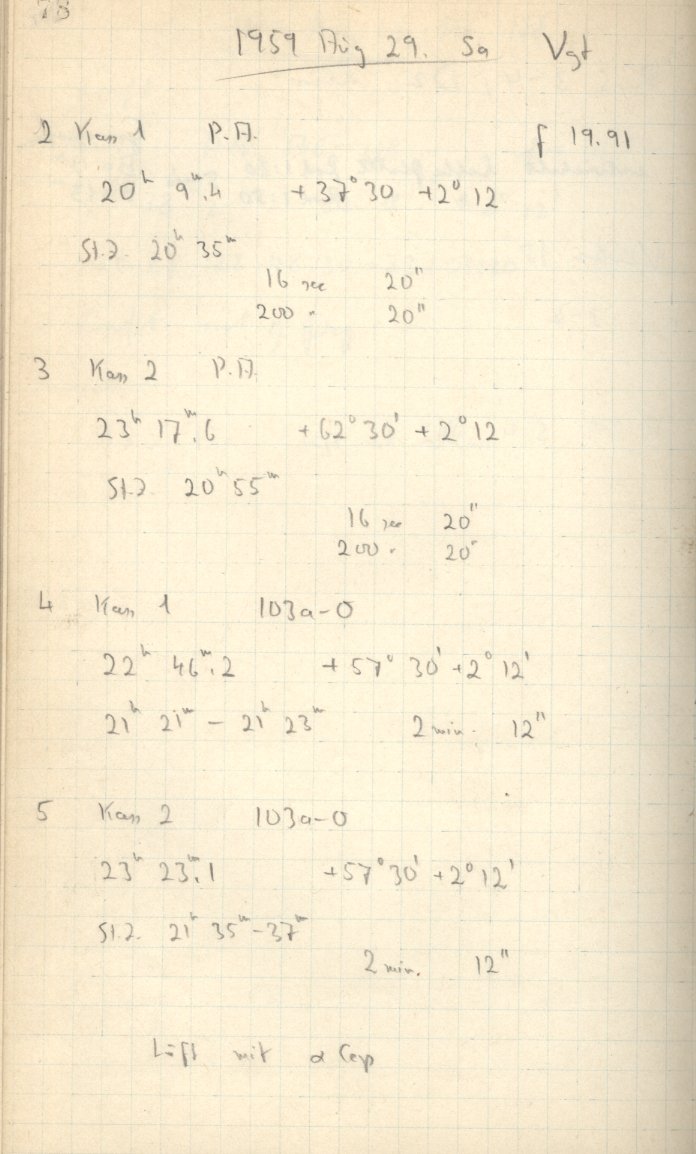 78
1959 Aug 29. Sa Vgt
2 Kass 1 P.A. f 19.91
20ʰ 9ᵐ.4 +37° 30 +2° 12
St.Z. 20ʰ 35ᵐ
16 sec 20"
200 " 20"
3 Kass 2 P.A.
23ʰ 17ᵐ.6 +62° 30' +2° 12
St.Z. 20ʰ 55ᵐ
16 sec 20"
200 " 20"
4 Kass 1 103a-O
22ʰ 46ᵐ.2 +57° 30' +2° 12'
21ʰ 21ᵐ - 21ʰ 23ᵐ 2 min. 12"
5 Kass 2 103a-O
23ʰ 23ᵐ.1 +57° 30' +2° 12'
St.Z. 21ʰ 35ᵐ-37ᵐ
2 min. 12"
Luft mit α Cep